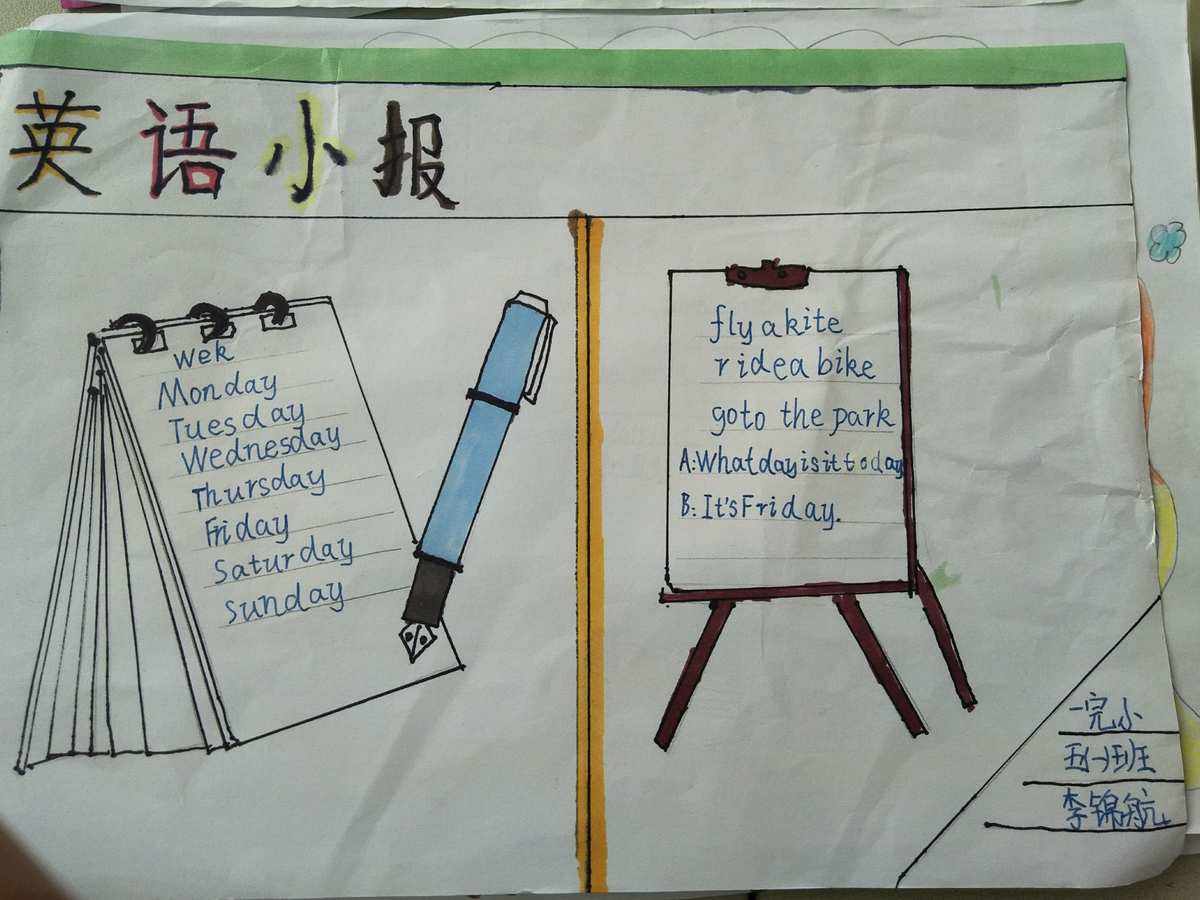 英语小报
wek
Monday
Tuesday
Wednesday
Thursday
Friday
Saturday
sunday
fly a kite
ride a bike
goto the park
A: What day is it today
B: It's Friday.
一完小
五(一)班
李锦航